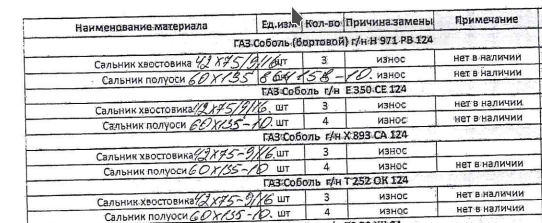 Наименование материала Ед.изм. Кол-во Причина замены Примечание
ГАЗ Соболь (бортовой) г/н Н 971 РВ 124
Сальник хвостовика 42х75/9/16. шт 3 износ нет в наличии
Сальник полуоси 60х135 - 10. износ нет в наличии
ГАЗ Соболь г/н Е 350 СЕ 124
Сальник хвостовика 42х75/9/16. шт 3 износ нет в наличии
Сальник полуоси 60х135-10. шт 4 износ нет в наличии
ГАЗ Соболь г/н Х 893 СА 124
Сальник хвостовика 42х75-9/16 шт 3 износ
Сальник полуоси 60х135-10 шт 4 износ нет в наличии
ГАЗ Соболь г/н Т 252 ОК 124
Сальник хвостовика 42х75-9/16 шт 3 износ нет в наличии
Сальник полуоси 60х135-10. шт 4 износ нет в наличии